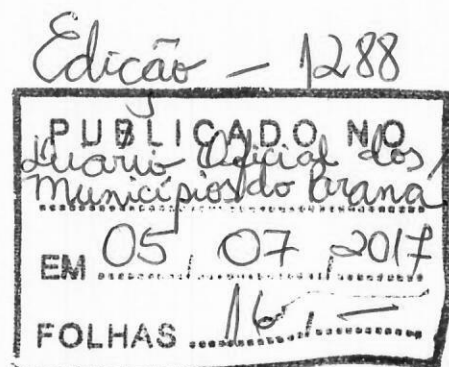 Edição - 1288
PUBLICADO NO
Diário Oficial dos
Municípios do Paraná
EM 05, 07, 2017
FOLHAS 16, —